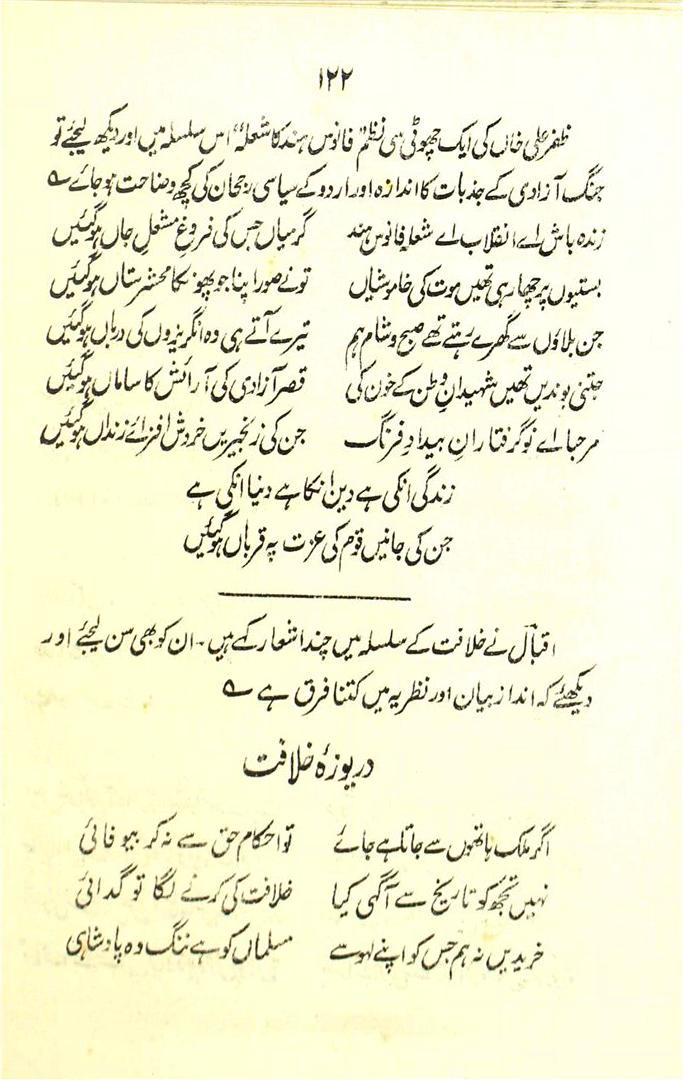 ۱۲۲
ظفر علی خاں کی ایک چھوٹی سی نظم "فانوس ہند کا شعلہ" اس سلسلہ میں اور دیکھ لیجئے تو
جنگ آزادی کے جذبات کا اندازہ اور اردو کے سیاسی رجحان کی کچھ وضاحت ہو جائے ؎
زندہ باش اے انقلاب اے شعلۂ فانوس ہند گرمیاں جس کی فروغِ مشعلِ جاں ہو گئیں
بستیوں پر چھا رہی تھیں موت کی خاموشیاں تو نے صور اپنا جو پھونکا محشرستاں ہو گئیں
جن بلاؤں سے گھرے رہتے تھے صبح و شام ہم تیرے آتے ہی وہ انگریزوں کی درباں ہو گئیں
جتنی بوندیں تھیں شہیدانِ وطن کے خون کی قصرِ آزادی کی آرائش کا ساماں ہو گئیں
مرحبا اے نو گرفتارانِ بیدادِ فرنگ جن کی زنجیریں خروش افزائے زنداں ہو گئیں
زندگی انکی ہے دین انکا ہے دنیا انکی ہے
جن کی جانیں قوم کی عزت پہ قرباں ہو گئیں
اقبالؔ نے خلافت کے سلسلہ میں چند اشعار کہے ہیں۔ ان کو بھی سن لیجئے اور
دیکھئے کہ انداز بیان اور نظریہ میں کتنا فرق ہے ؎
دریوزۂ خلافت
اگر ملک ہاتھوں سے جاتا ہے جائے تو احکام حق سے نہ کر بیوفائی
نہیں تجھ کو تاریخ سے آگہی کیا خلافت کی کرنے لگا تو گدائی
خریدیں نہ ہم جس کو اپنے لہو سے مسلماں کو ہے ننگ وہ پادشاہی